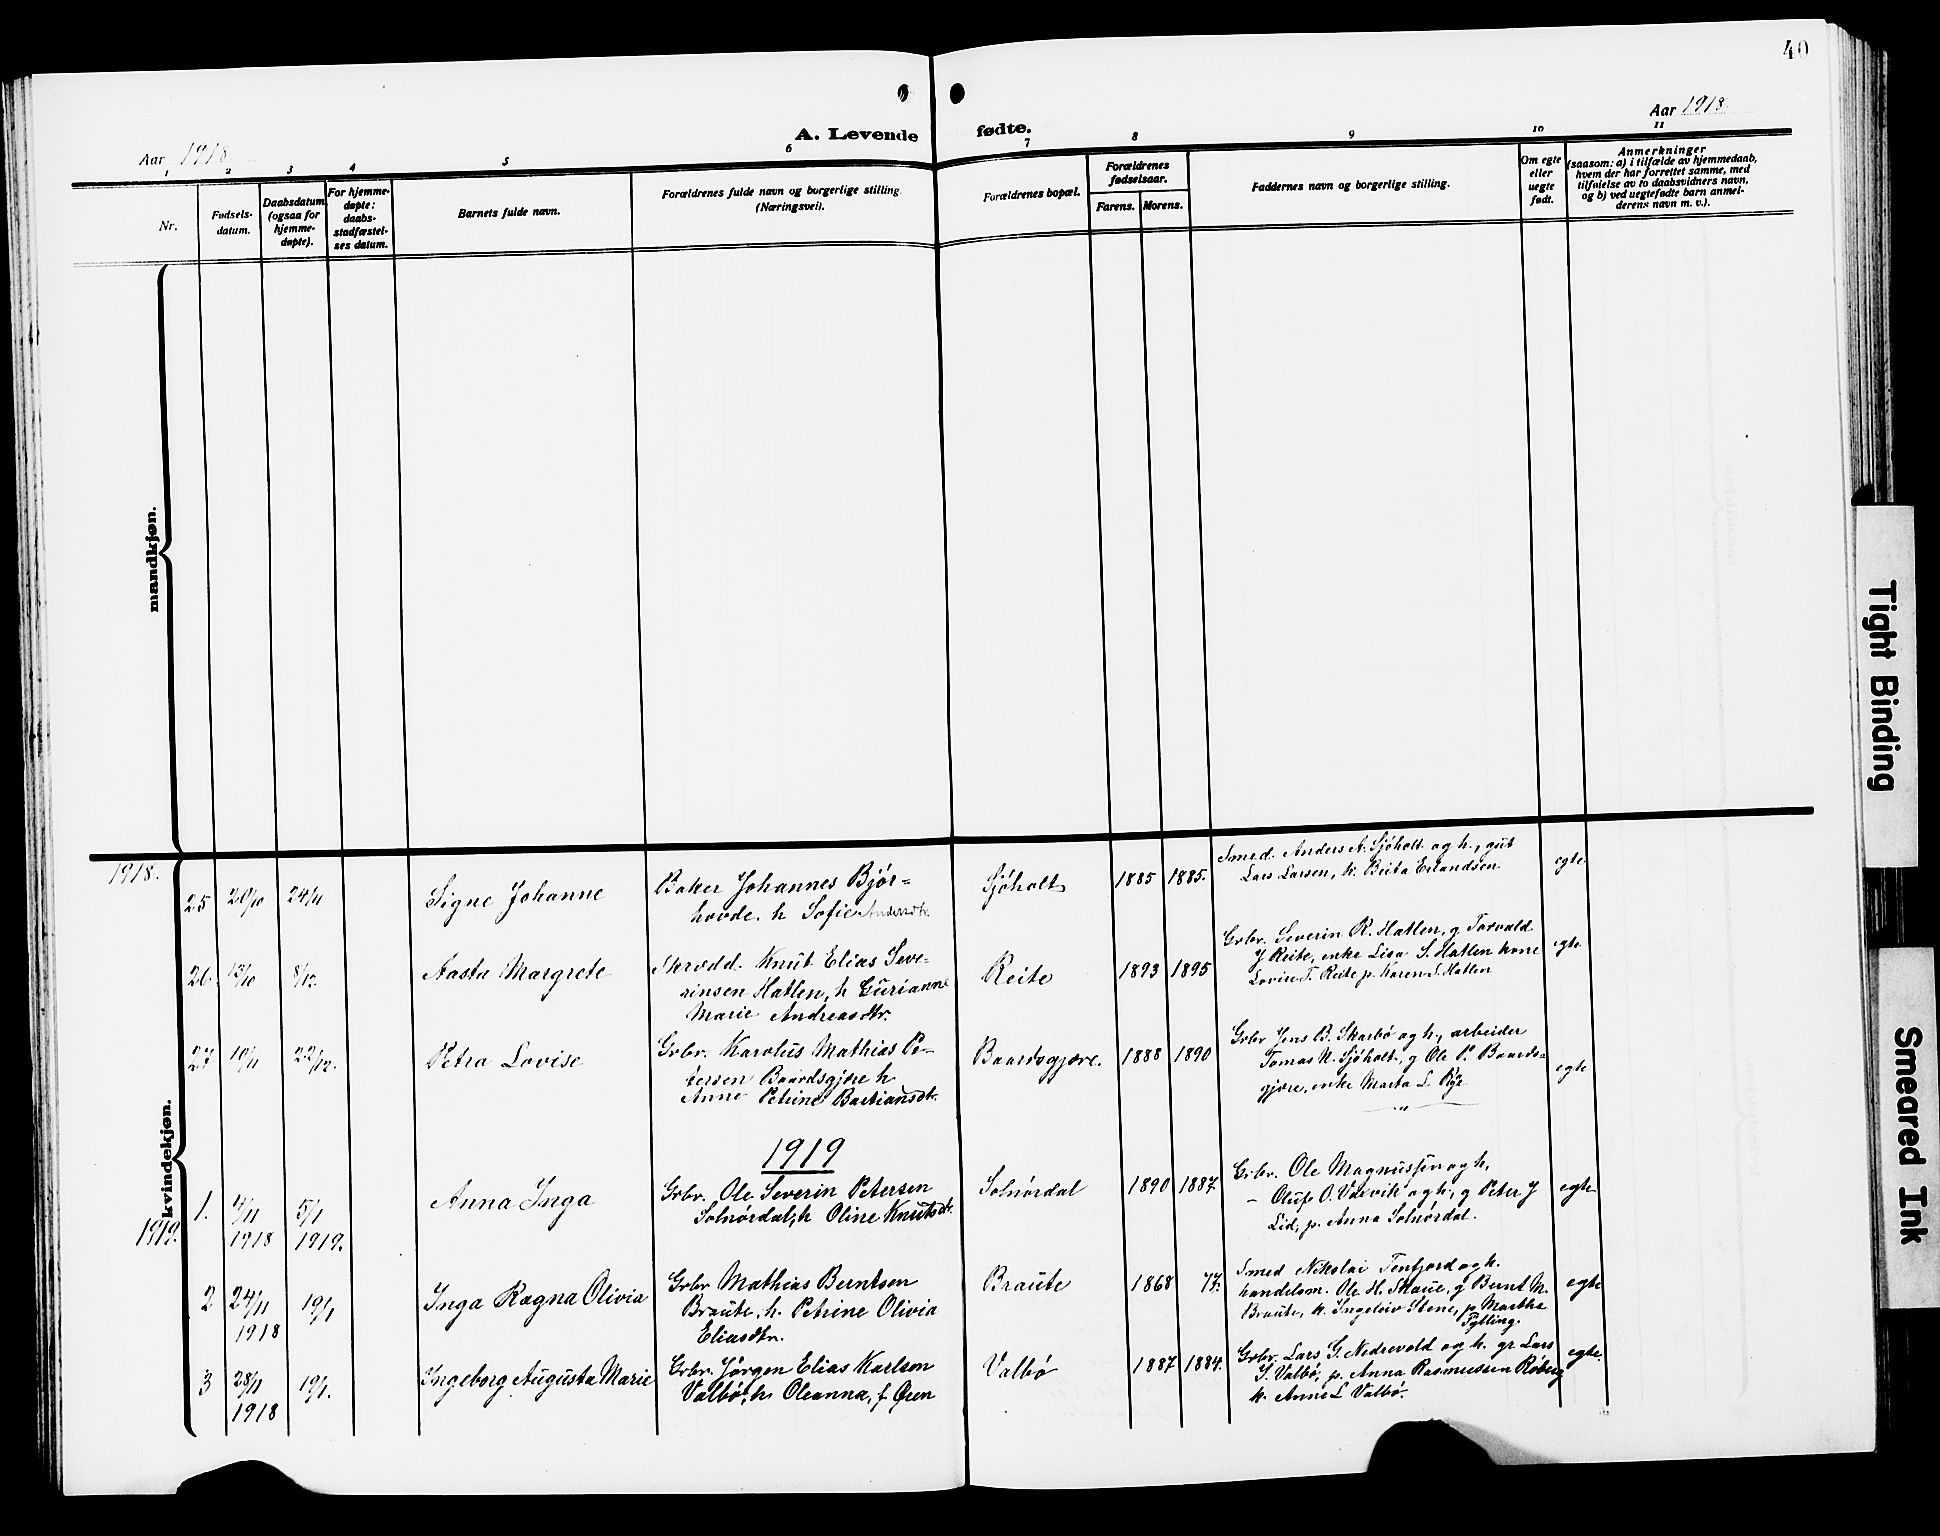 40
Aar 1918
A. Levende fødte.
Aar 1918.
1 2 3 4 5 6 7 8 9 10 11
Nr.
Fødsels-
datum.
Daabsdatum
(ogsaa for
hjemme-
døpte).
For hjemme-
døpte:
daabs-
stadfæstel-
ses datum.
Barnets fulde navn.
Forældrenes fulde navn og borgerlige stilling
(Næringsvei).
Forældrenes bopæl.
Forældrenes
fødselsaar.
Farens. Morens.
Faddernes navn og borgerlige stilling.
Om egte
eller
uegte
født.
Anmerkninger
(saasom: a) i tilfælde av hjemmedaab,
hvem der har forrettet samme, med
tilføielse av to daabsvidners navn,
og b) ved uegtefødte barn anmel-
derens navn m. v.).
mandkjøn.
kvindekjøn.
1918.
25 20/10 24/11 Signe Johanne
Baker Johannes Bjør-
hovde. h Sofie Andersdtr.
Sjøholt 1885 1885.
Smed. Anders A. Sjøholt og h., gut
Lars Larsen, k. Beita Erlandsen.
egte.
26. 15/10 8/12. Aasta Margrete
Skrædd. Knut Elias Seve-
rinsen Hatlen, h Gurianne
Marie Andreasdtr.
Reite 1893 1895
Grbr. Severin R. Hatlen, g Torvald
J Reite, enke Lisa S. Hatlen kone
Lovise T. Reite p. Karen S. Hatlen
egte
27 10/11 22/12. Petra Lovise
Grbr. Karolus Mathias Pe-
tersen Baardsgjære h
Anne Petrine Bastiansdtr.
Baardsgjære. 1888 1890
Grbr Jens B. Skarbø og h., arbeider
Tomas N. Sjøholt, g Ole P. Baards-
gjære, enke Marta L. Rye
egte
1919
1919.
1. 4/11 1918 5/1 1919. Anna Inga
Grbr. Ole Severin Petersen
Solnørdal, h Oline Knutsdtr.
Solnørdal 1890 1887.
Grbr. Ole Magnussen og h.
– Oluf O. Vaevik og h., g Peter J
Lid, p. Anna Solnørdal.
egte
2 24/11 1918 19/1 Inga Ragna Olivia
Grbr Mathias Berntsen
Braute, h. Petrine Olivia
Eliasdtr.
Braute 1868 77.
Smed Nikolai Tenfjord og h.
handelsm. Ole H. Skaue, g Bernt M.
Braute, k. Ingeleiv Stene, p Marthe
Fylling.
egte
3 28/11 1918 19/1. Ingeborg Augusta Marie
Grbr. Jørgen Elias Karlsen
Valbø, h Oleanna, f Øen
Valbø 1887 1884.
Grbr. Lars G. Nedrevold og h. gr Lars
J. Valbø, p. Anna Rasmussen Roberg
k. Anne L Valbø.
egte.
Tight Binding
Smeared Ink